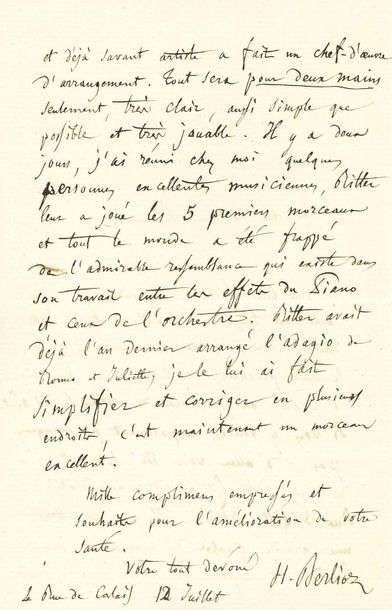 et déjà savant artiste a fait un chef-d'œuvre
d'arrangement. Tout sera pour deux mains
seulement, très clair, aussi simple que
possible et très jouable. Il y a deux
jours, j'ai réuni chez moi quelques
personnes excellentes musiciennes, Ritter
leur a joué les 5 premiers morceaux
et tout le monde a été frappé
de l'admirable ressemblance qui existe dans
son travail entre les effets du Piano
et ceux de l'orchestre. Ritter avait
déjà l'an dernier arrangé l'adagio de
Roméo et Juliette, je le lui ai fait
simplifier et corriger en plusieurs
endroits, c'est maintenant un morceau
excellent.
Mille complimens empressés et
souhaits pour l'amélioration de votre
santé.
Votre tout dévoué
H. Berlioz
4 Rue de Calais 12 Juillet